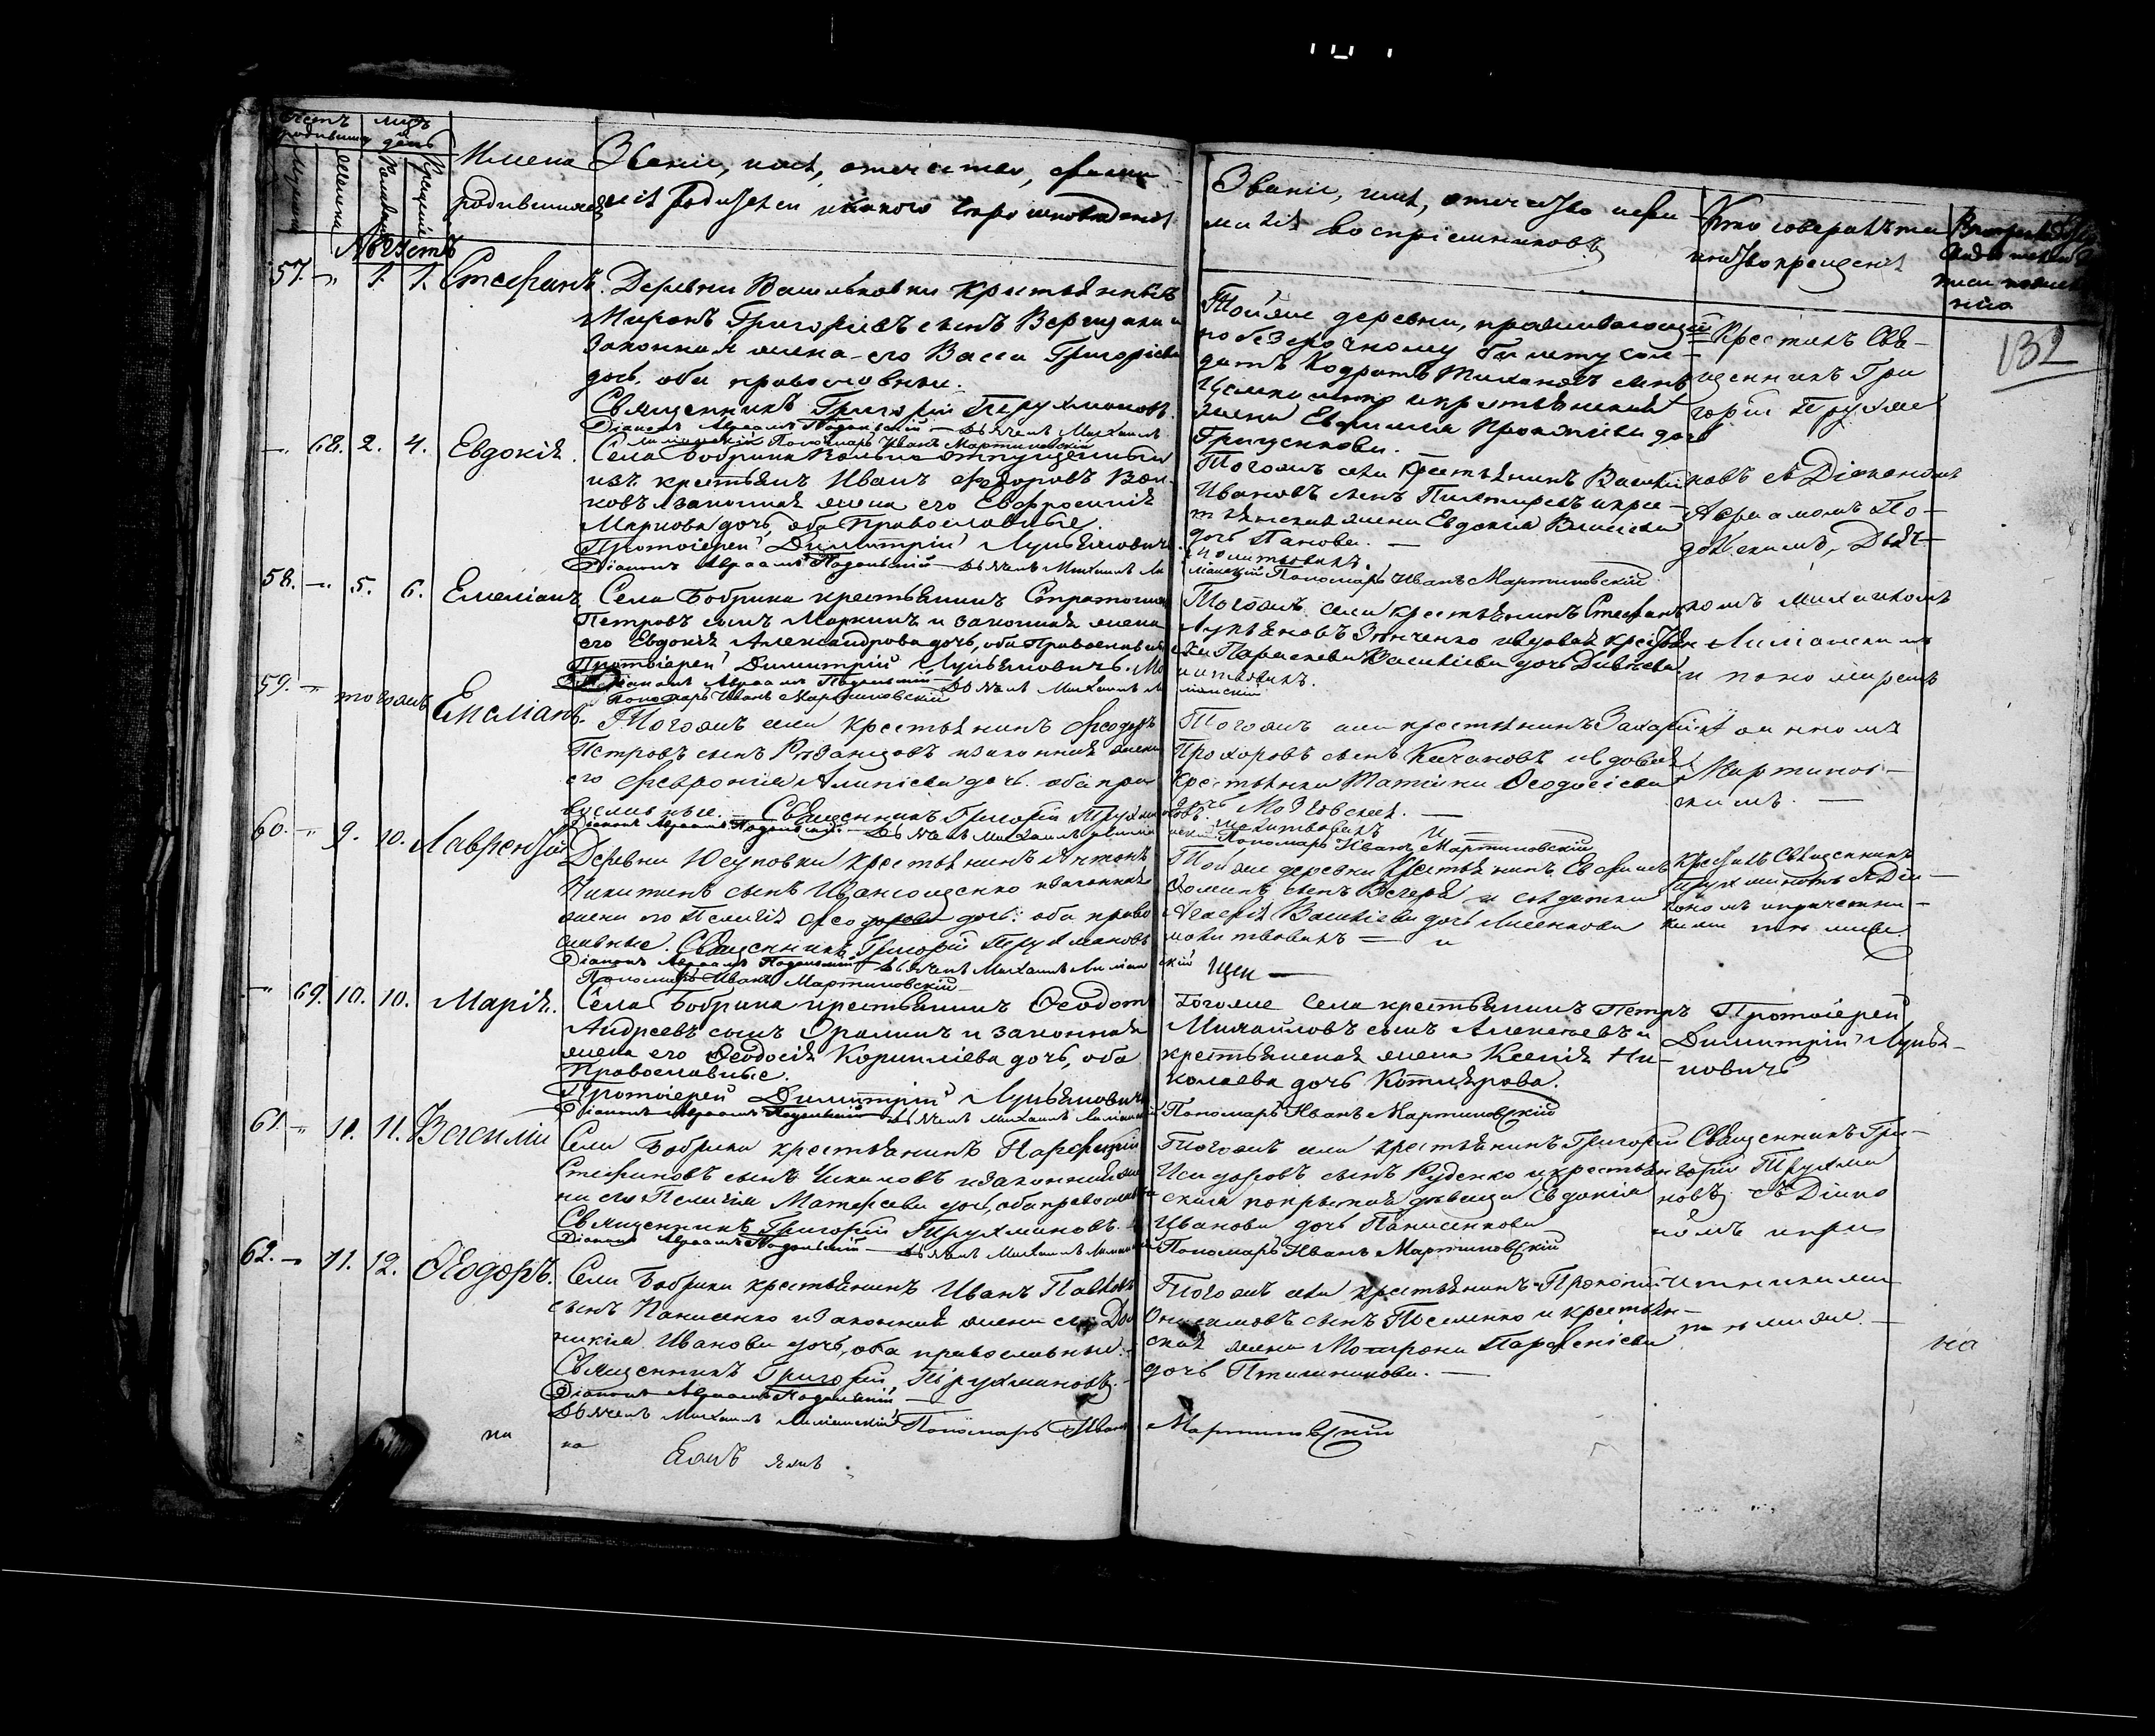 Счетъ родившихся
мужска
женска
мѣсяцъ и день
Рожденія
Крещенія
Имена родившихся
Званіе, имя, отчество, фами-
лія родителей и какого вѣроисповѣданія
Званіе, имя, отчество и фа-
милія воспріемниковъ
Кто совершалъ та-
инство крещенія
Августъ
132
57. 1. 1. Стефанъ.
Деревни Васильковки крестьянинъ
Миронъ Григорьевъ сынъ и
законная жена его Васса Григорьева
дочь, оба православные.
Священникъ Григорій Трухмановъ.
Діаконъ Авраамъ Подольскій — Дьячекъ Михаилъ
Лиманскій Пономарь Иванъ Мартиновскій
Тойже деревни, проживающій
по безсрочному билету сол-
датъ Кодратъ сынъ
и крестьянская
жена Евфимія Прокопіева дочь
Гриценкова. —
Крестилъ Свя-
щенникъ Гри
горій Трухма
68. 2. 4. Евдокія.
Села Бобрика вольно отпущенный
изъ крестьянъ Иванъ Ѳедоровъ Вол-
ковъ и законная жена его Евфросинія
Маркова дочь, оба православные.
Протоіерей Димитрій Лукьяновичъ.
Діаконъ Авраамъ Подольскій — Дьячекъ Михаилъ Ли
Тогожъ села крестьянинъ Василій
Ивановъ сынъ и крес-
тьянская жена Евдокія
дочь Панова. —
Молитвовалъ.
манскій Пономарь Иванъ Мартиновскій
новъ съ Діакономъ
Авраамомъ По-
дольскимъ, Дьяч-
58. 5. 6. Емеліанъ
Села Бобрика крестьянинъ
Петровъ сынъ Маркинъ и законная жена
его Евдокія Александрова дочь, оба Православные
Протоіерей Димитрій Лукьяновичъ. Мо
Діаконъ Авраамъ Подольскій — Дьячекъ Михаилъ Ли
Пономарь Иванъ Мартиновскій
Тогожъ села крестьянинъ Стефанъ
Лукьяновъ Зінченко и вдовая крестьян
ка Параскева Василіева дочь
литвовалъ.
манскій
комъ Михаиломъ
Лиманскимъ
и пономаремъ
59. тогожъ Емеліанъ.
Тогожъ села крестьянинъ Ѳеодоръ
Петровъ сынъ Рязанцовъ и законная жена
его Февронія Алипіева дочь. оба пра
вославные. — Священникъ Григорій Трухма
Діаконъ Авраамъ Подольскій — Дьячекъ Михаилъ Лиман
Тогожъ села крестьянинъ Захарій
Прохоровъ сынъ Качановъ и вдовая
крестьянка Татіяна Ѳеодосіева
дочь —
новъ. молитвовалъ и
скій Пономарь Иванъ Мартиновскій
Іоанномъ
Мартинов-
скимъ. —
60. 9. 10. Лаврентій
Деревни Юсуповки крестьянинъ Антонъ
Никитинъ сынъ и законная
жена его Пелагія Ѳеодорова дочь: оба право
славные. Священникъ Григорій Трухмановъ
Діаконъ Авраамъ Подольскій — Дьячекъ Михаилъ Лиман
Пономарь Иванъ Мартиновскій
Тойже деревни крестьянинъ Евфимъ
Фоминъ сынъ и солдатка
Агафія Василіева дочь Лисенкова
молитвовалъ = и
скій
Крестилъ Священникъ
Трухмановъ съ Діа-
кономъ и причетни-
ками тѣми же
69. 10. 10. Марія.
Села Бобрика крестьянинъ Ѳеодотъ
Андреевъ сынъ и законная
жена его Ѳеодосія Корниліева дочь, оба
Православные.
Протоіерей Димитрій Лукьяновичъ
Діаконъ Авраамъ Подольскій — Дьячекъ Михаилъ Лиманскій
тогоже села крестьянинъ Петръ
Михайловъ сынъ Алексѣевъ и
крестьянская жена Ксенія Ни-
колаева дочь Котлярова.
Пономарь Иванъ Мартиновскій
Протоіерей
Димитрій Лукья-
новичъ
61. 11. 11. Василій
Села Бобрика крестьянинъ Парфентій
Стефановъ сынъ и законная же
на его Пелагія Матфеева дочь, оба православны
Священникъ Григорій Трухмановъ.
Діаконъ Авраамъ Подольскій — Дьячекъ Михаилъ Лиманскій
Тогожъ села крестьянинъ Григорій
Исидоровъ сынъ Руденко и крестьян
ская покрытая дѣвица Евдокія
Иванова дочь Панасенкова
Пономарь Иванъ Мартиновскій
Священникъ Гри-
горій Трухма
новъ съ Діако
номъ и при
62. 11. 12. Ѳеодоръ.
Села Бобрика крестьянинъ Иванъ Павловъ
сынъ Панасенко и законная жена его До
никія Иванова дочь, оба православные.
Священникъ Григорій Трухмановъ.
Діаконъ Авраамъ Подольскій —
Дьячекъ Михаилъ Лиманскій Пономарь Иванъ
Тогожъ села крестьянинъ Прокопій
Онисимовъ сынъ и крестьян-
ская жена Мотрона Парфеніева
дочь —
Мартиновскій
четниками
тѣми же. —
на
на
на